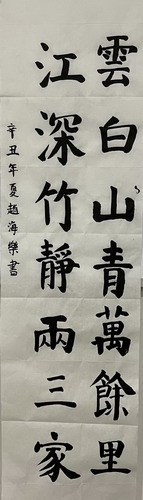 雲白山青萬餘里
江深竹靜兩三家
辛丑年夏趙海樂書